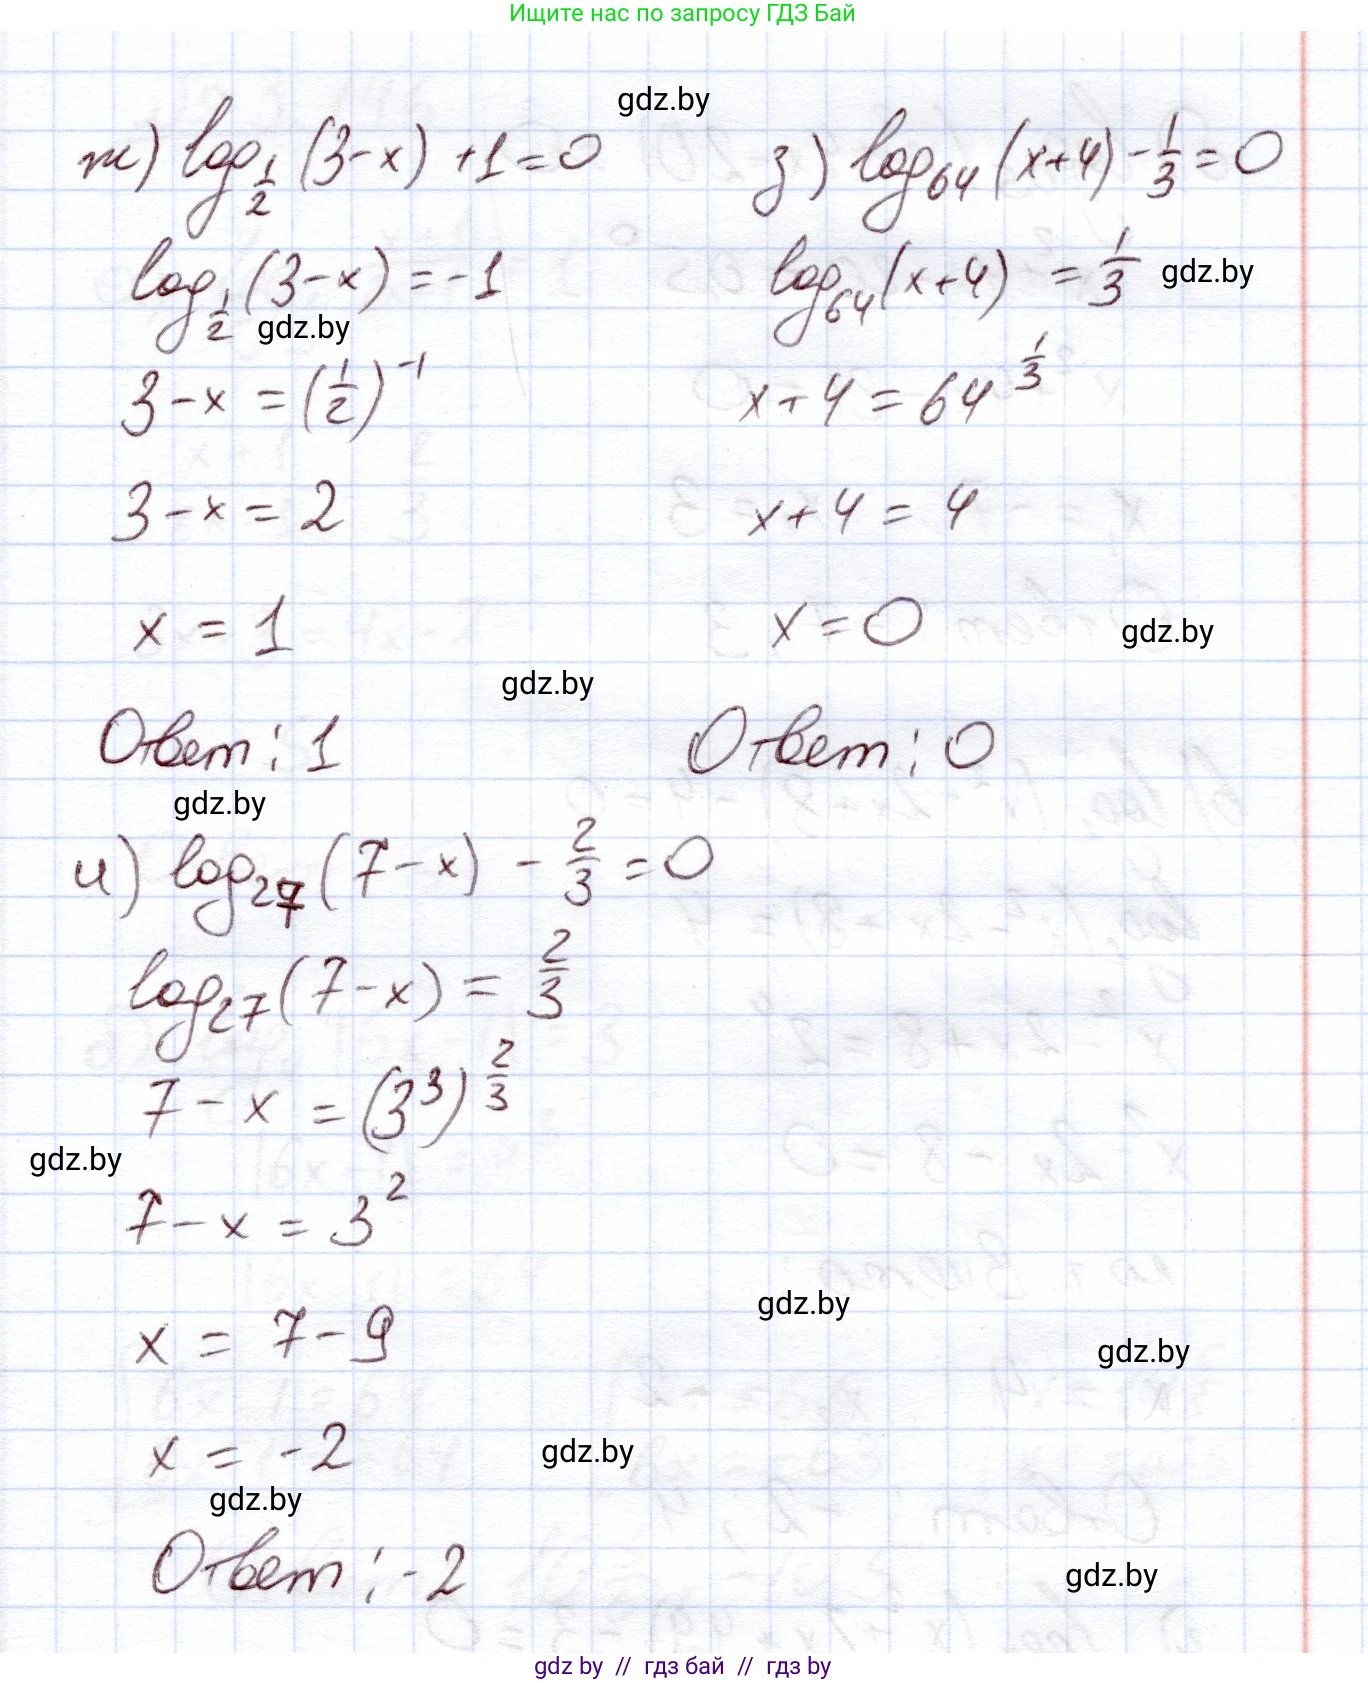 Ищите нас по запросу ГДЗ Бай
gdz.by
ж) log_{1/2} (3-x) +1=0
log_{1/2} (3-x) = -1
gdz.by
3-x = (1/2)^{-1}
3-x = 2
x = 1
gdz.by
Ответ: 1
gdz.by
з) log_{64} (x+4) - 1/3 = 0
log_{64} (x+4) = 1/3
gdz.by
x+4 = 64^{1/3}
x+4 = 4
x=0
gdz.by
Ответ: 0
и) log_{27} (7-x) - 2/3 = 0
log_{27} (7-x) = 2/3
7-x = (3^3)^{2/3}
gdz.by
7-x = 3^2
gdz.by
x = 7-9
gdz.by
x = -2
gdz.by
gdz.by
Ответ: -2
gdz.by
gdz.by // гдз бай // гдз by